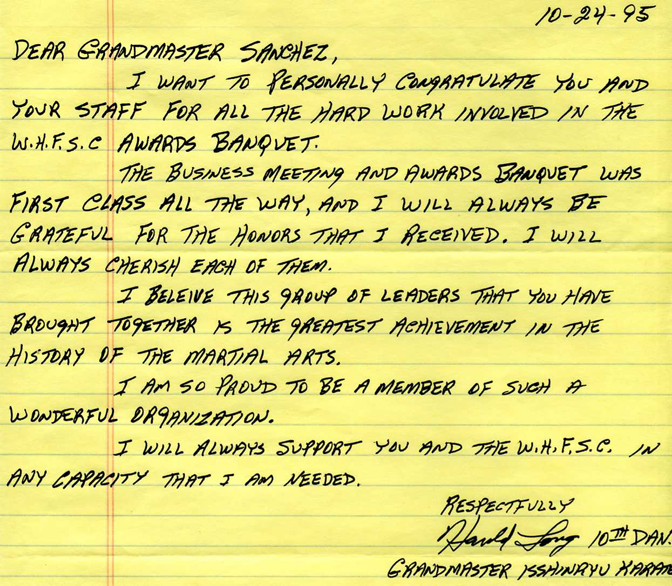 10-24-95
DEAR GRANDMASTER SANCHEZ,
I WANT TO PERSONALLY CONGRATULATE YOU AND
YOUR STAFF FOR ALL THE HARD WORK INVOLVED IN THE
W.H.F.S.C AWARDS BANQUET.
THE BUSINESS MEETING AND AWARDS BANQUET WAS
FIRST CLASS ALL THE WAY, AND I WILL ALWAYS BE
GRATEFUL FOR THE HONORS THAT I RECEIVED. I WILL
ALWAYS CHERISH EACH OF THEM.
I BELEIVE THIS GROUP OF LEADERS THAT YOU HAVE
BROUGHT TOGETHER IS THE GREATEST ACHIEVEMENT IN THE
HISTORY OF THE MARTIAL ARTS.
I AM SO PROUD TO BE A MEMBER OF SUCH A
WONDERFUL ORGANIZATION.
I WILL ALWAYS SUPPORT YOU AND THE W.H.F.S.C. IN
ANY CAPACITY THAT I AM NEEDED.
RESPECTFULLY
Harold Long 10TH DAN.
GRANDMASTER ISSHINRYU KARATE